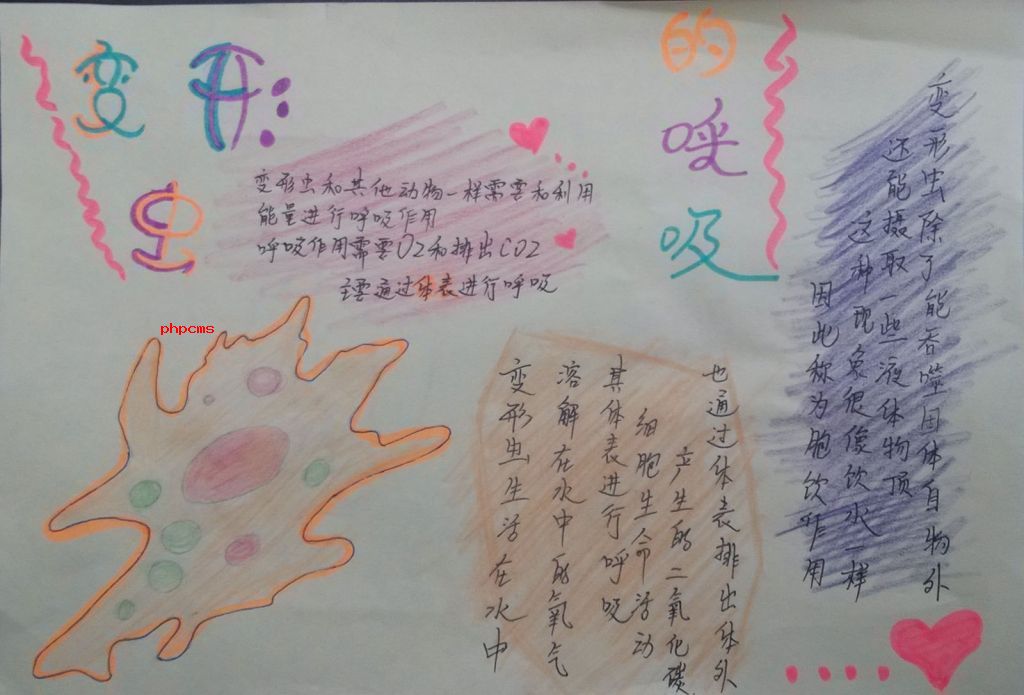 变形虫
的呼吸
变形虫和其他动物一样需要和利用
能量进行呼吸作用
呼吸作用需要O2和排出CO2
主要通过体表进行呼吸
phpcms
变形虫生活在水中
溶解在水中的氧气
其体表进行呼吸
细胞生命活动
产生的二氧化碳
也通过体表排出体外
变形虫除了能吞噬固体自物外
还能摄取一些液体物质
这种现象很像饮水一样
因此称为胞饮作用